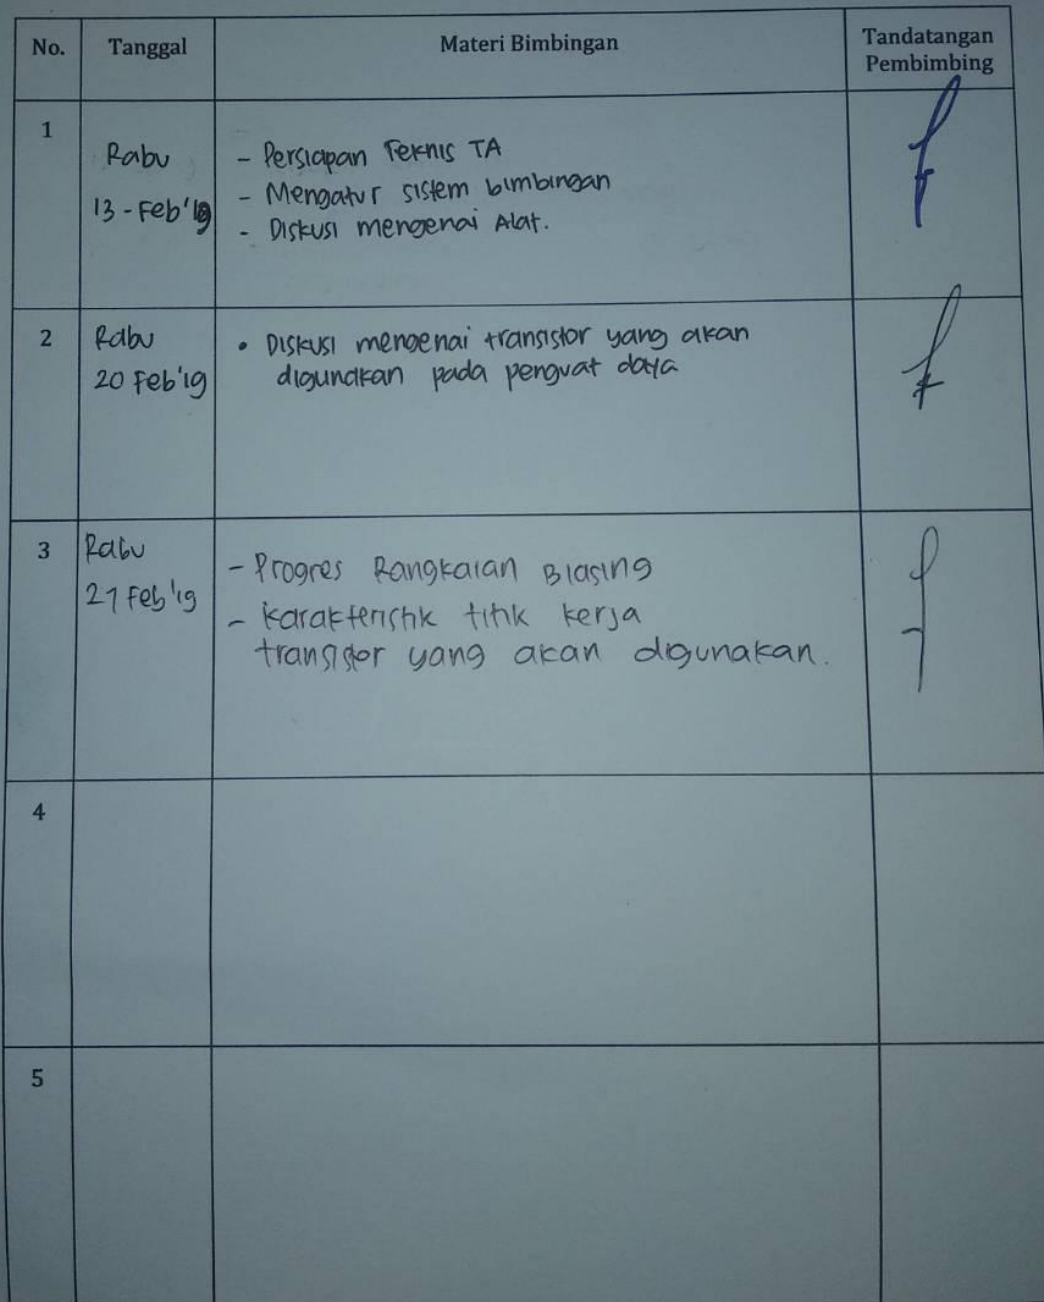 No. Tanggal Materi Bimbingan Tandatangan
Pembimbing
1
Rabu
13 - Feb'19
- Persiapan Teknis TA
- Mengatur sistem bimbingan
- Diskusi mengenai Alat.
2
Rabu
20 Feb'19
• Diskusi mengenai transistor yang akan
digunakan pada penguat daya
3
Rabu
27 Feb'19
- Progres Rangkaian Biasing
- karakteristik titik kerja
transistor yang akan digunakan.
4
5